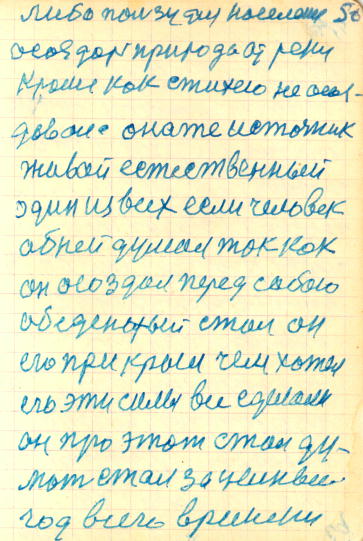 либо пользу для поселоне 56
осоздал природа от реки
Кроме как стихею не осол-
довоне она те источник
живой естественный
один из всех если человек
об ней думал ток как
он осоздал перед собою
обеденный стол он
его прикрыл чем хотел
его эти силы все сделали
он про этот стол ду-
мат стал за ценные
год всего времени